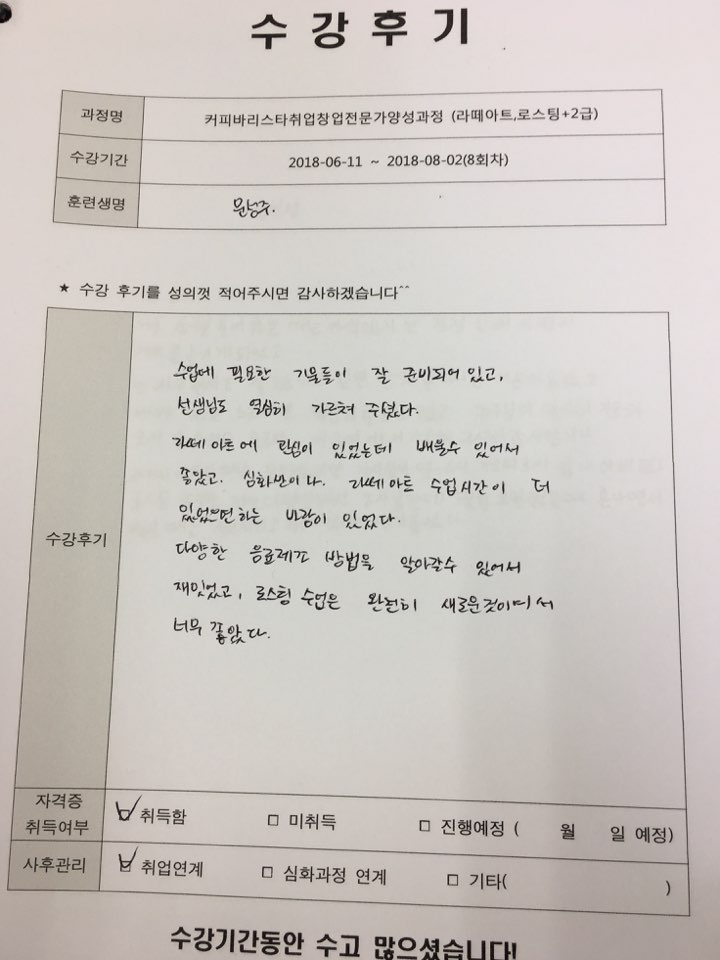 수 강 후 기
과정명 커피바리스타취업창업전문가양성과정 (라떼아트,로스팅+2급)
수강기간 2018-06-11 ~ 2018-08-02(8회차)
훈련생명 문성주.
★ 수강 후기를 성의껏 적어주시면 감사하겠습니다^^
수강후기
수업에 필요한 기물들이 잘 준비되어 있고,
선생님도 열심히 가르쳐 주셨다.
라떼 아트에 관심이 있었는데 배울수 있어서
좋았고. 심화반이나. 라떼아트 수업시간이 더
있었으면하는 바람이 있었다.
다양한 음료제조 방법을 알아갈수 있어서
재밌었고, 로스팅 수업은 완전히 새로운것이여서
너무 좋았다.
자격증 취득여부 ☑ 취득함 □ 미취득 □ 진행예정 ( 월 일 예정)
사후관리 ☑ 취업연계 □ 심화과정 연계 □ 기타( )
수강기간동안 수고 많으셨습니다!